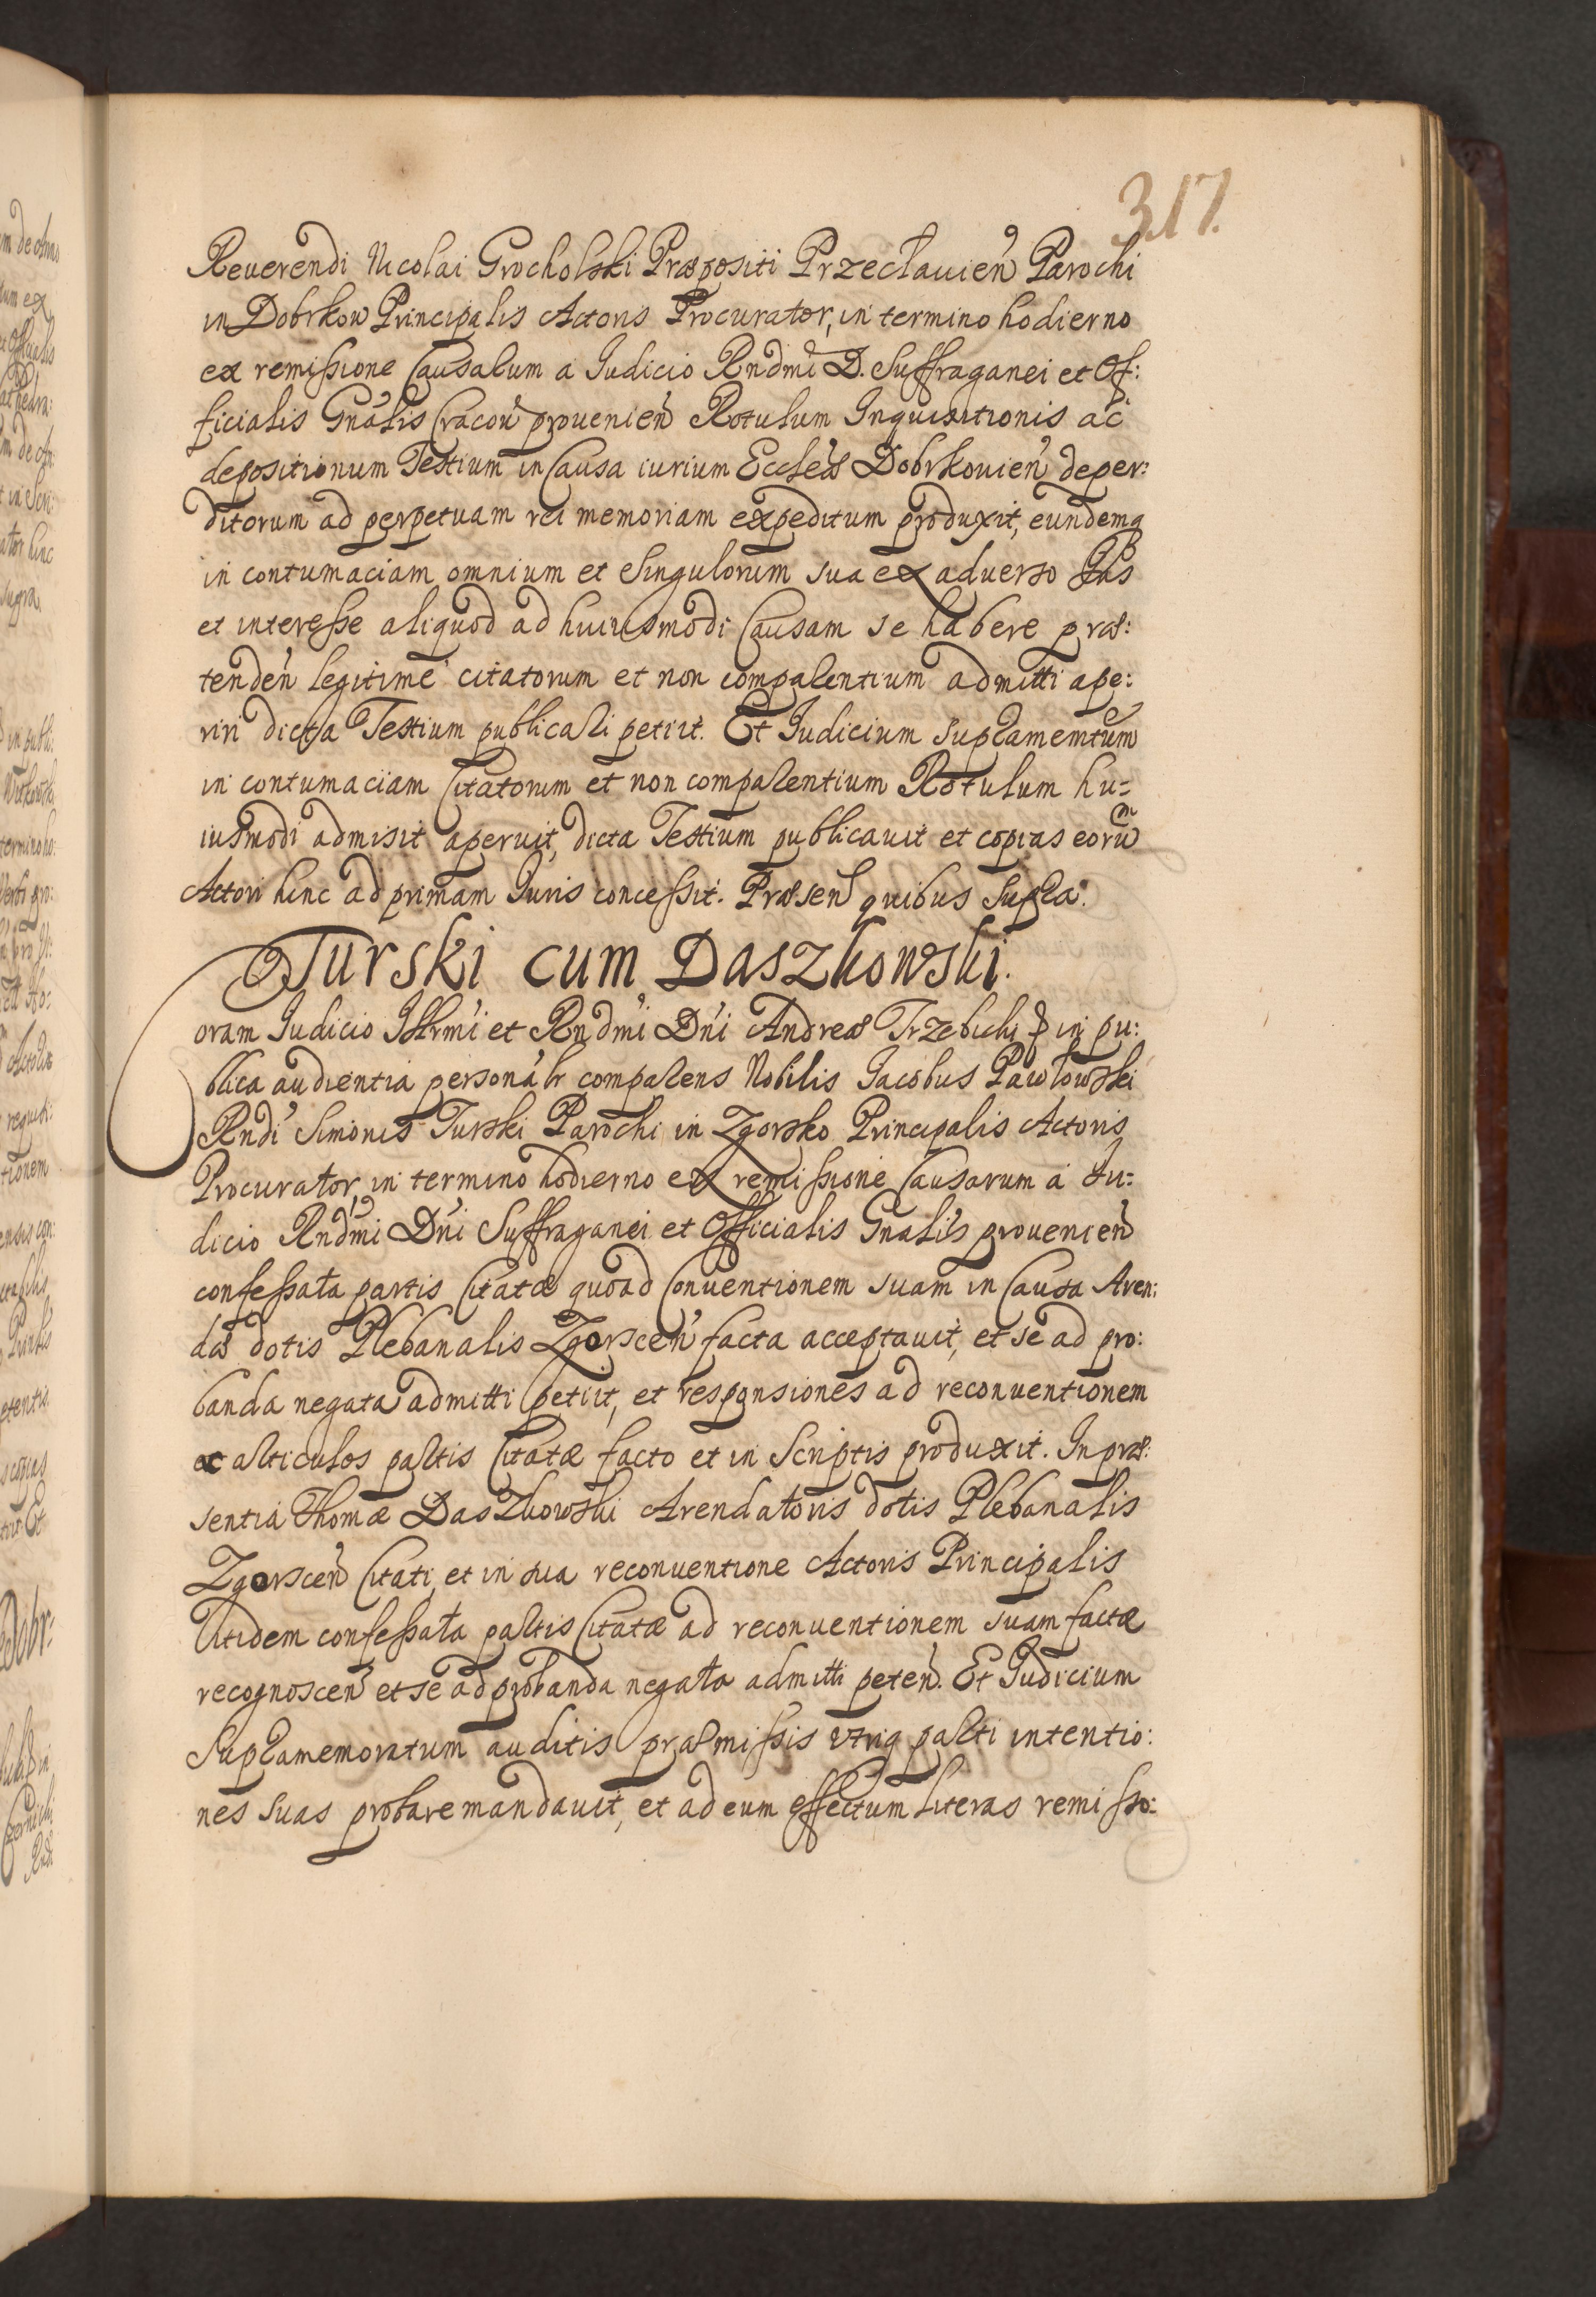 317.
Reuerendi Nicolai Grocholski Præpositi Przecłauien̄ Parochi
in Dobrkow Principalis Actoris Procurator, in termino hodierno
ex remissione Causarum a Iudicio Rndmi D. Suffraganei et Of:
ficialis Gn̄alis Cracou̅ prouenien̄ Rotulum Inquisitionis ac
depositionum Testium in Causa iurium Eccleæ Dobrkouien̄ deper:
ditorum ad perpetuam rei memoriam expeditum produxit, eundemq
in contumaciam omnium et singulorum sua ex aduerso
et interesse aliquod ad huiusmodi Causam se habere præ:
tenden̄ legitimè citatorum et non comparentium admitti ape:
riri dicta Testium publicari petiit. Et Iudicium supramemtum
in contumaciam Citatorum et non comparentium Rotulum hu:
iusmodi admisit aperuit, dicta Testium publicauit et copias eorū
Actori hinc ad primam Iuris concessit. Præsen̄ quibus supra.
Turski cum Daszkowski.
Coram Iudicio Illrmi et Rndmi Dni Andreæ Trzebicki in pu:
blica audientia personalr comparens Nobilis Jacobus Pawłowski
Rndi Simonis Turski Parochi in Zgorsko Principalis Actoris
Procurator, in termino hodierno ex remissione Causarum a Iu:
dicio Rndmi Dni Suffraganei et Officialis Gnalis prouenien̄
confessata partis Citatæ quoad Conuentionem suam in Causa Aren:
dæ dotis Plebanalis Zgorscen̄ facta acceptauit, et se ad pro:
banda negata admitti petiit, et responsiones ad reconuentionem
et articulos partis Citatæ facto et in scriptis produxit. In præ:
sentia Thomæ Daszkowski Arendatoris dotis Plebanalis
Zgorscen̄ Citati, et in sua reconuentione Actoris Principalis
itidem confessata partis Citatæ ad reconuentionem suam factæ
recognoscen̄ et se ad probanda negata admitti peten̄. Et Iudicium
supramemoratum auditis præmissis vtriq parti intentio:
nes suas probare mandauit, et ad eum effectum literas remisso: